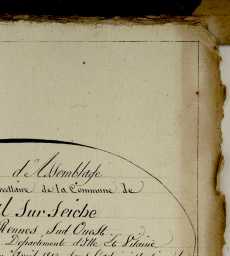 d'Assemblage
cellaire de la Commune de
l sur Seiche
Rennes Sud Ouest
Département d'Ille Et Vilaine